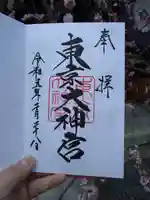 奉拝
東京大神宮
令和五年二月二十八日